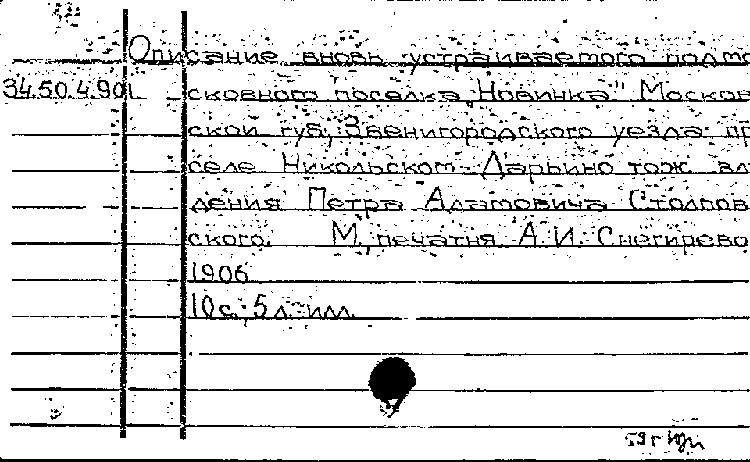 Описание вновь устраиваемого подмо
34.50.4.901 сковного поселка „Новинка" Москов
ской губ., Звенигородского уезда пр
селе Никольском-Дарьино тож вла
дения Петра Адамовича Столпов
ского. М., печатня А.И. Снегирево
1906
10 с.; 5 л. илл.